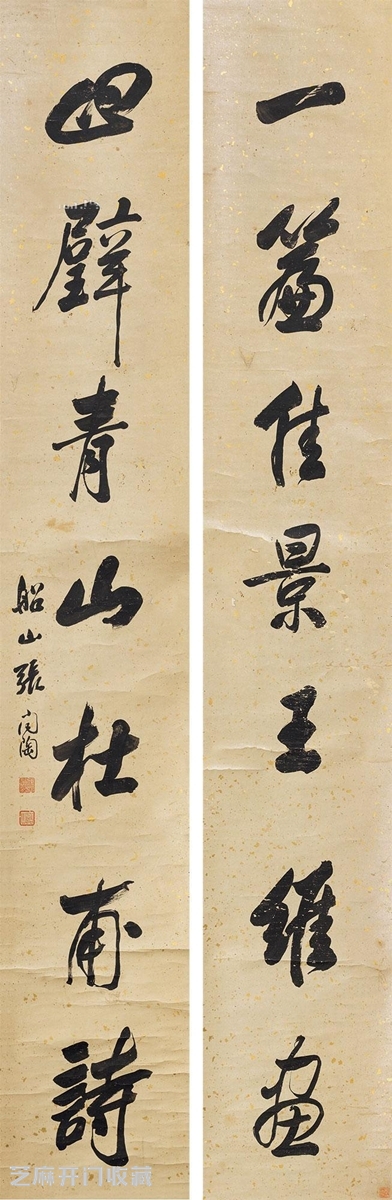 一簾佳景王維畫
四壁青山杜甫詩
船山張問陶
芝麻开门收藏